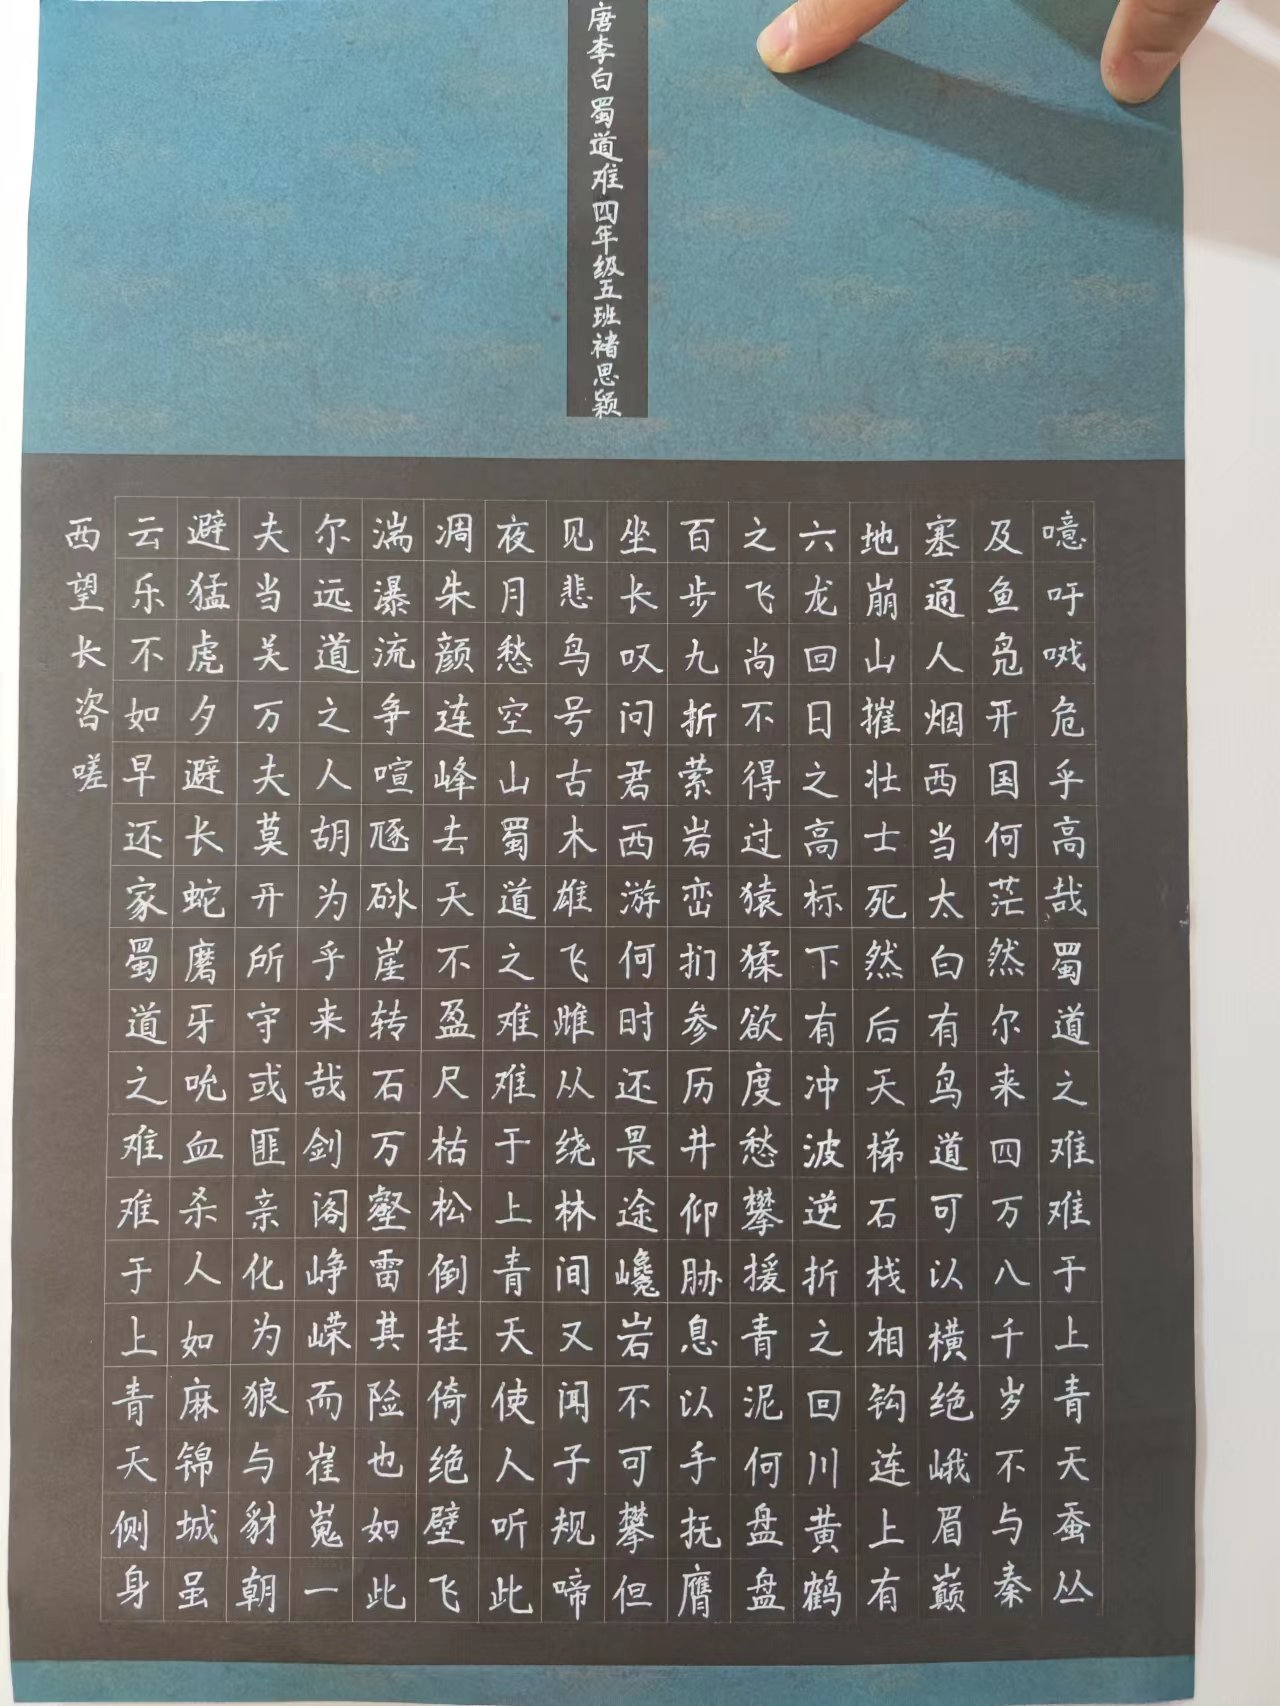 唐李白蜀道难四年级五班褚思颖
噫吁嚱危乎高哉蜀道之难难于上青天蚕丛
及鱼凫开国何茫然尔来四万八千岁不与秦
塞通人烟西当太白有鸟道可以横绝峨眉巅
地崩山摧壮士死然后天梯石栈相钩连上有
六龙回日之高标下有冲波逆折之回川黄鹤
之飞尚不得过猿猱欲度愁攀援青泥何盘盘
百步九折萦岩峦扪参历井仰胁息以手抚膺
坐长叹问君西游何时还畏途巉岩不可攀但
见悲鸟号古木雄飞雌从绕林间又闻子规啼
夜月愁空山蜀道之难难于上青天使人听此
凋朱颜连峰去天不盈尺枯松倒挂倚绝壁飞
湍瀑流争喧豗砯崖转石万壑雷其险也如此
尔远道之人胡为乎来哉剑阁峥嵘而崔嵬一
夫当关万夫莫开所守或匪亲化为狼与豺朝
避猛虎夕避长蛇磨牙吮血杀人如麻锦城虽
云乐不如早还家蜀道之难难于上青天侧身
西望长咨嗟